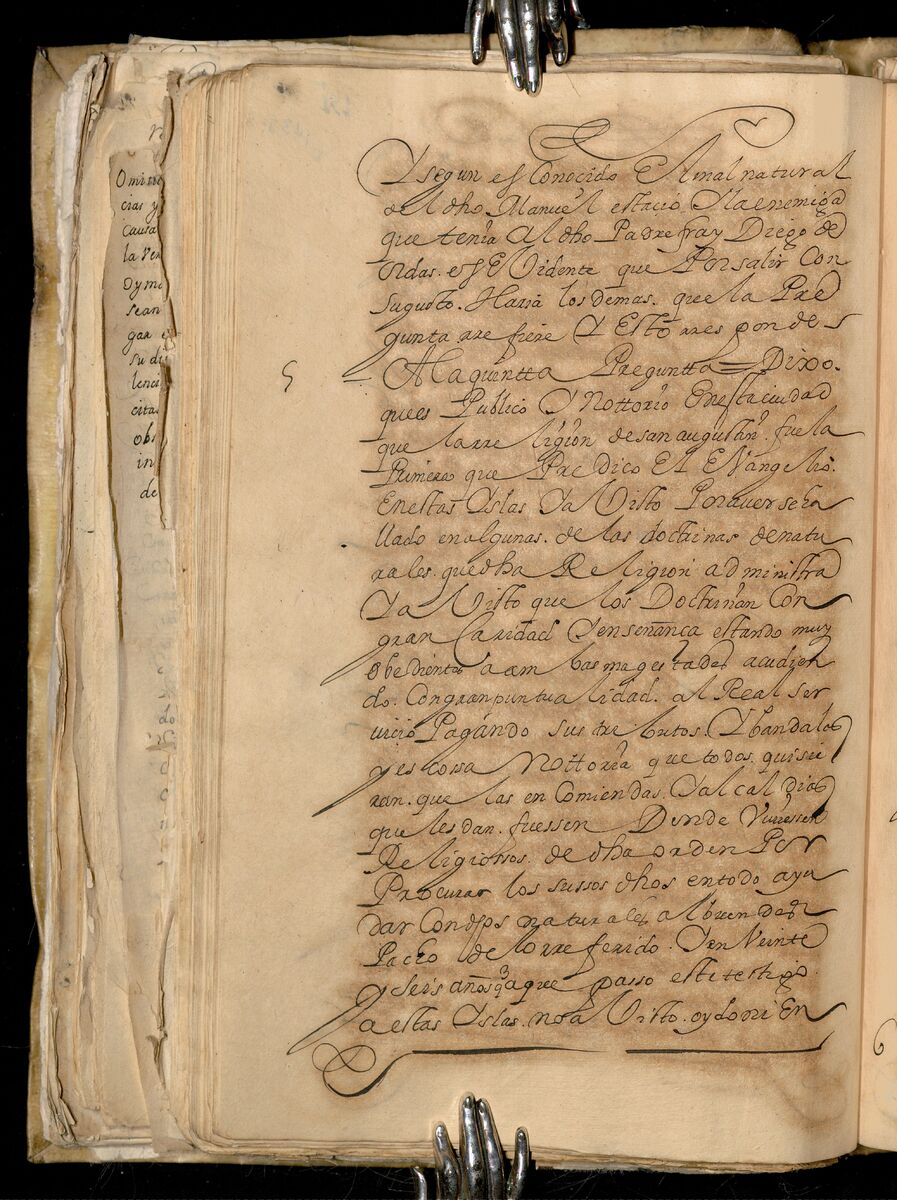 Omi
cias y
Causa
la Ven
Dymi
sean
gar e
su di
lenci
citas
obs
in
de
Y segun es Conocido El mal natural
del dho Manuel estacio Y la enemiga
que tenia Al dho Padre fray Diego de
Ordas. es EVidente que Por salir Con
su gusto. Haria los demas. que la Pre
gunta rrefiere Y Esto rresponde
5
A la quintta Preguntta = Dixo.
que es Publico Y Nottorio En esta ciudad
que la rreligion de san augustin. fue la
Primera que Predico El EVangelio.
En estas Yslas Y a Visto Por averse ha
llado en algunas. de las doctrinas de natu
rales. que dha Religion administra
Y a Visto que los Doctrinan Con
gran Caridad Y enseñança estando muy
obedientes a ambas magestades acudien
do. Con gran puntualidad. al Real ser
uicio Pagando sus tributos. Y bandalas
y es cossa Nottoria que todos. quisie
ran. que las enComiendas. Y alcaldias
que les dan. fuessen Donde Vuiessen
Religiossos. de dha orden Por
Procurar los sussos dhos en todo ayu
dar Con dhos naturales al buen des
Pacho de lo rreferido. Y en Veinte
y seis años que a que passo este testigo
a estas Yslas. no a Visto. oydo ni En